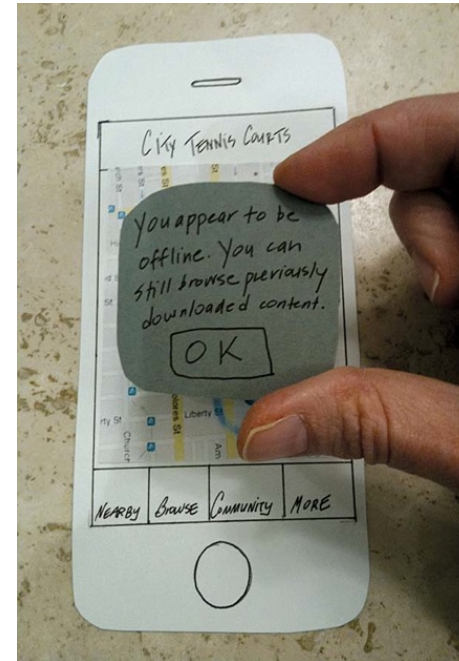 City Tennis Courts
You appear to be
offline. You can
still browse previously
downloaded content.
OK
Liberty
rty St
Church
Nearby Browse Community More